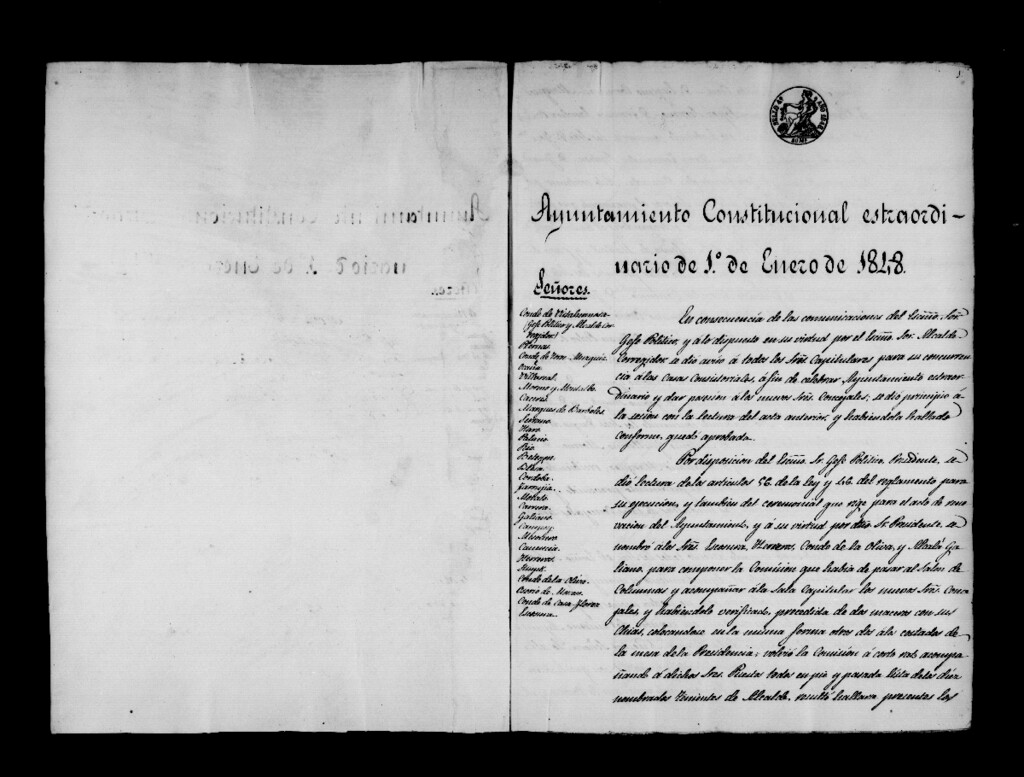 Ayuntamiento Constitucional estraordi-
nario de 1.º de Enero de 1848.
Señores.
Conde de Vistahermosa
Gefe Politico y Alcalde Cor-
regidor.
Conde de Torre Marquiz
Ocaña
Villarreal
Moreno y Montalbo
Marques de Barboles
Serrano
Haro
Rio
Cordoba
Carrera
Galiano
Herreros
Conde de la Oliva
Conde de Casa Florez
Escosura
En consecuencia de las comunicaciones del Escmo. Sor.
Gefe Politico, y a lo dispuesto en su virtud por el Escmo. Sor. Alcalde
Corregidor, se dio aviso á todos los Sres. Capitulares para su concurren-
cia á las Casas Consistoriales, á fin de celebrar Ayuntamiento estraor-
dinario y dar posesion á los nuevos Sres. Concejales; se dio principio a
la sesion con la lectura del acta anterior, y habiendola hallado
conforme, quedó aprobada.
Por disposicion del Escmo. Sr. Gefe Politico, Presidente, se
dió lectura de los articulos 56 de la ley y 46 del reglamento para
su ejecucion, y tambien del ceremonial que rige para el acto de reno-
vacion del Ayuntamiento, y á su virtud por dicho Sr. Presidente se
nombró á los Sres. Escosura, Herreros, Conde de la Oliva, y Alcalá Ga-
liano, para componer la Comision que habia de pasar al Salon de
Columnas y acompañar á la Sala Capitular los nuevos Sres. Conce-
jales, y habiendolo verificado, precedida de dos maceros con sus
colocandose en la misma forma otros dos á los costados de
la mesa de la Presidencia; volvió la Comision á corto rato acompa-
ñando á dichos Sres. Puestos todos en pie y pasada lista de los diez
nombrados Tenientes de Alcalde, resultó hallarse presentes los